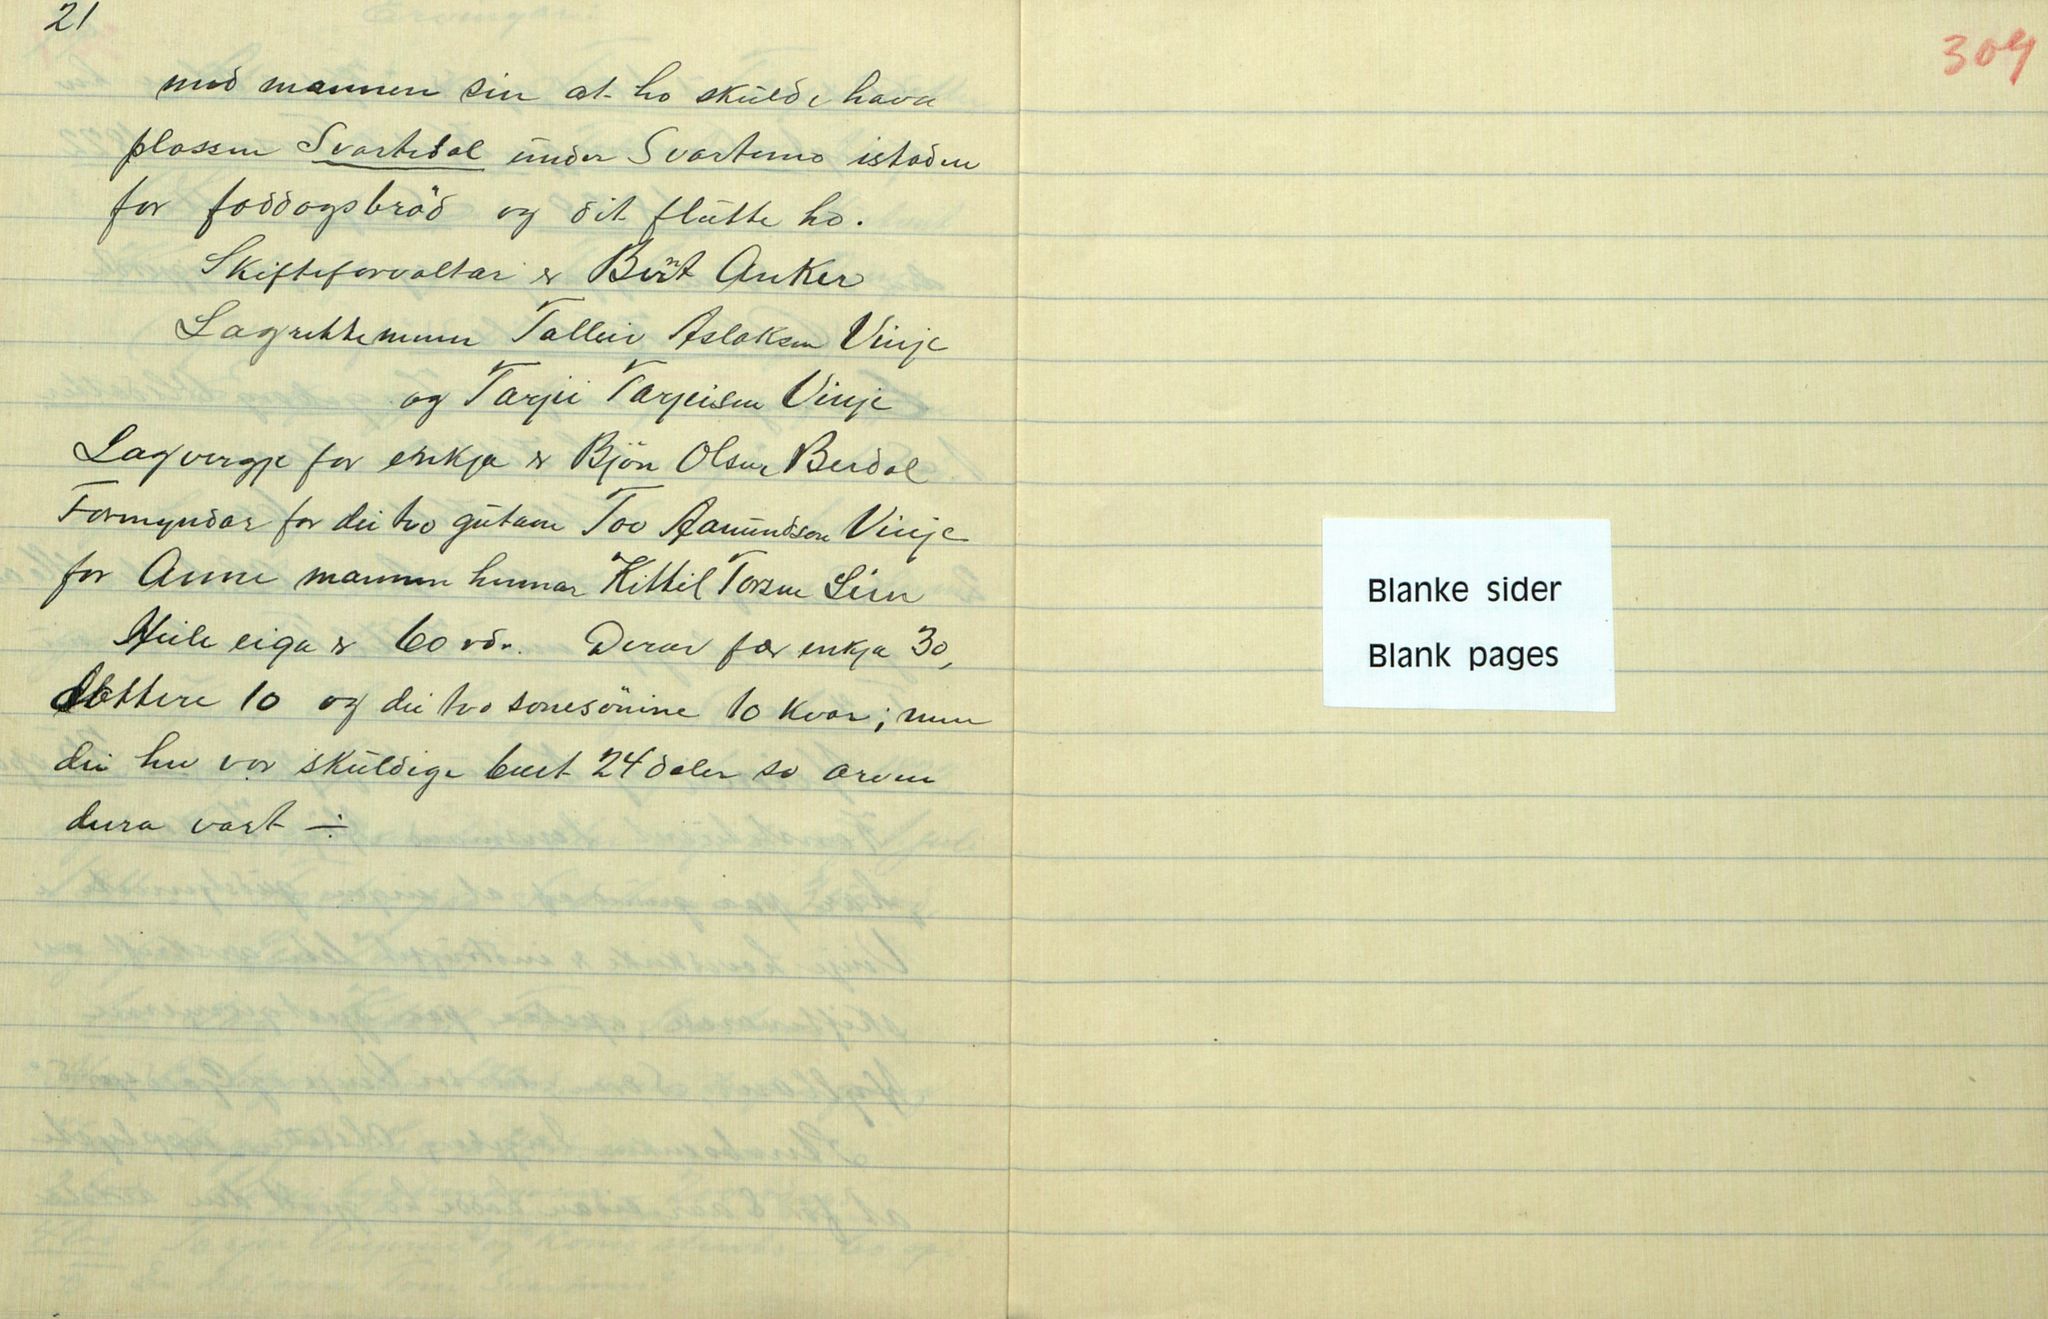 21
med mannen sin at ho skulde hava
plassen Svartedal under Svartemo istaden
for föddogsbröd og dit flutte ho.
Skifteforvaltar er Anker
Lagrettemenn Talleiv Aslaksen Vinje
og Tarjei Tarjeisen Vinje
Lagvergje for enkja er Bjön Olsen Berdal
Formyndar for dei tvo gutane Tov Aamundson Vinje
for Anne mannen hennar Kittil Torsen Lien
Heile eiga er 60 rdr. Derav fær enkja 30,
dottere 10 og dei tvo sonesönine 10 kvar; men
dei hev vor skuldige burt 24 daler so arven
deira vart ÷
304
Blanke sider
Blank pages